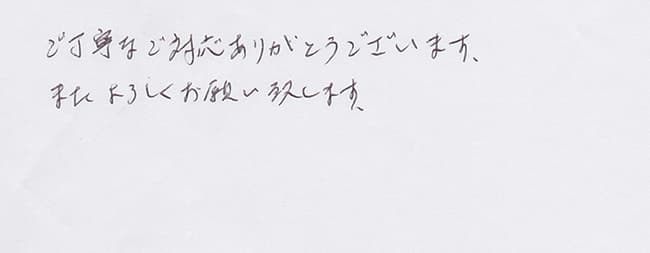 ご丁寧なご対応ありがとうございます、
またよろしくお願い致します。